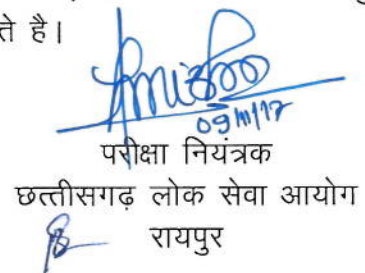 ते है।
09/11/17
परीक्षा नियंत्रक
छत्तीसगढ़ लोक सेवा आयोग
रायपुर